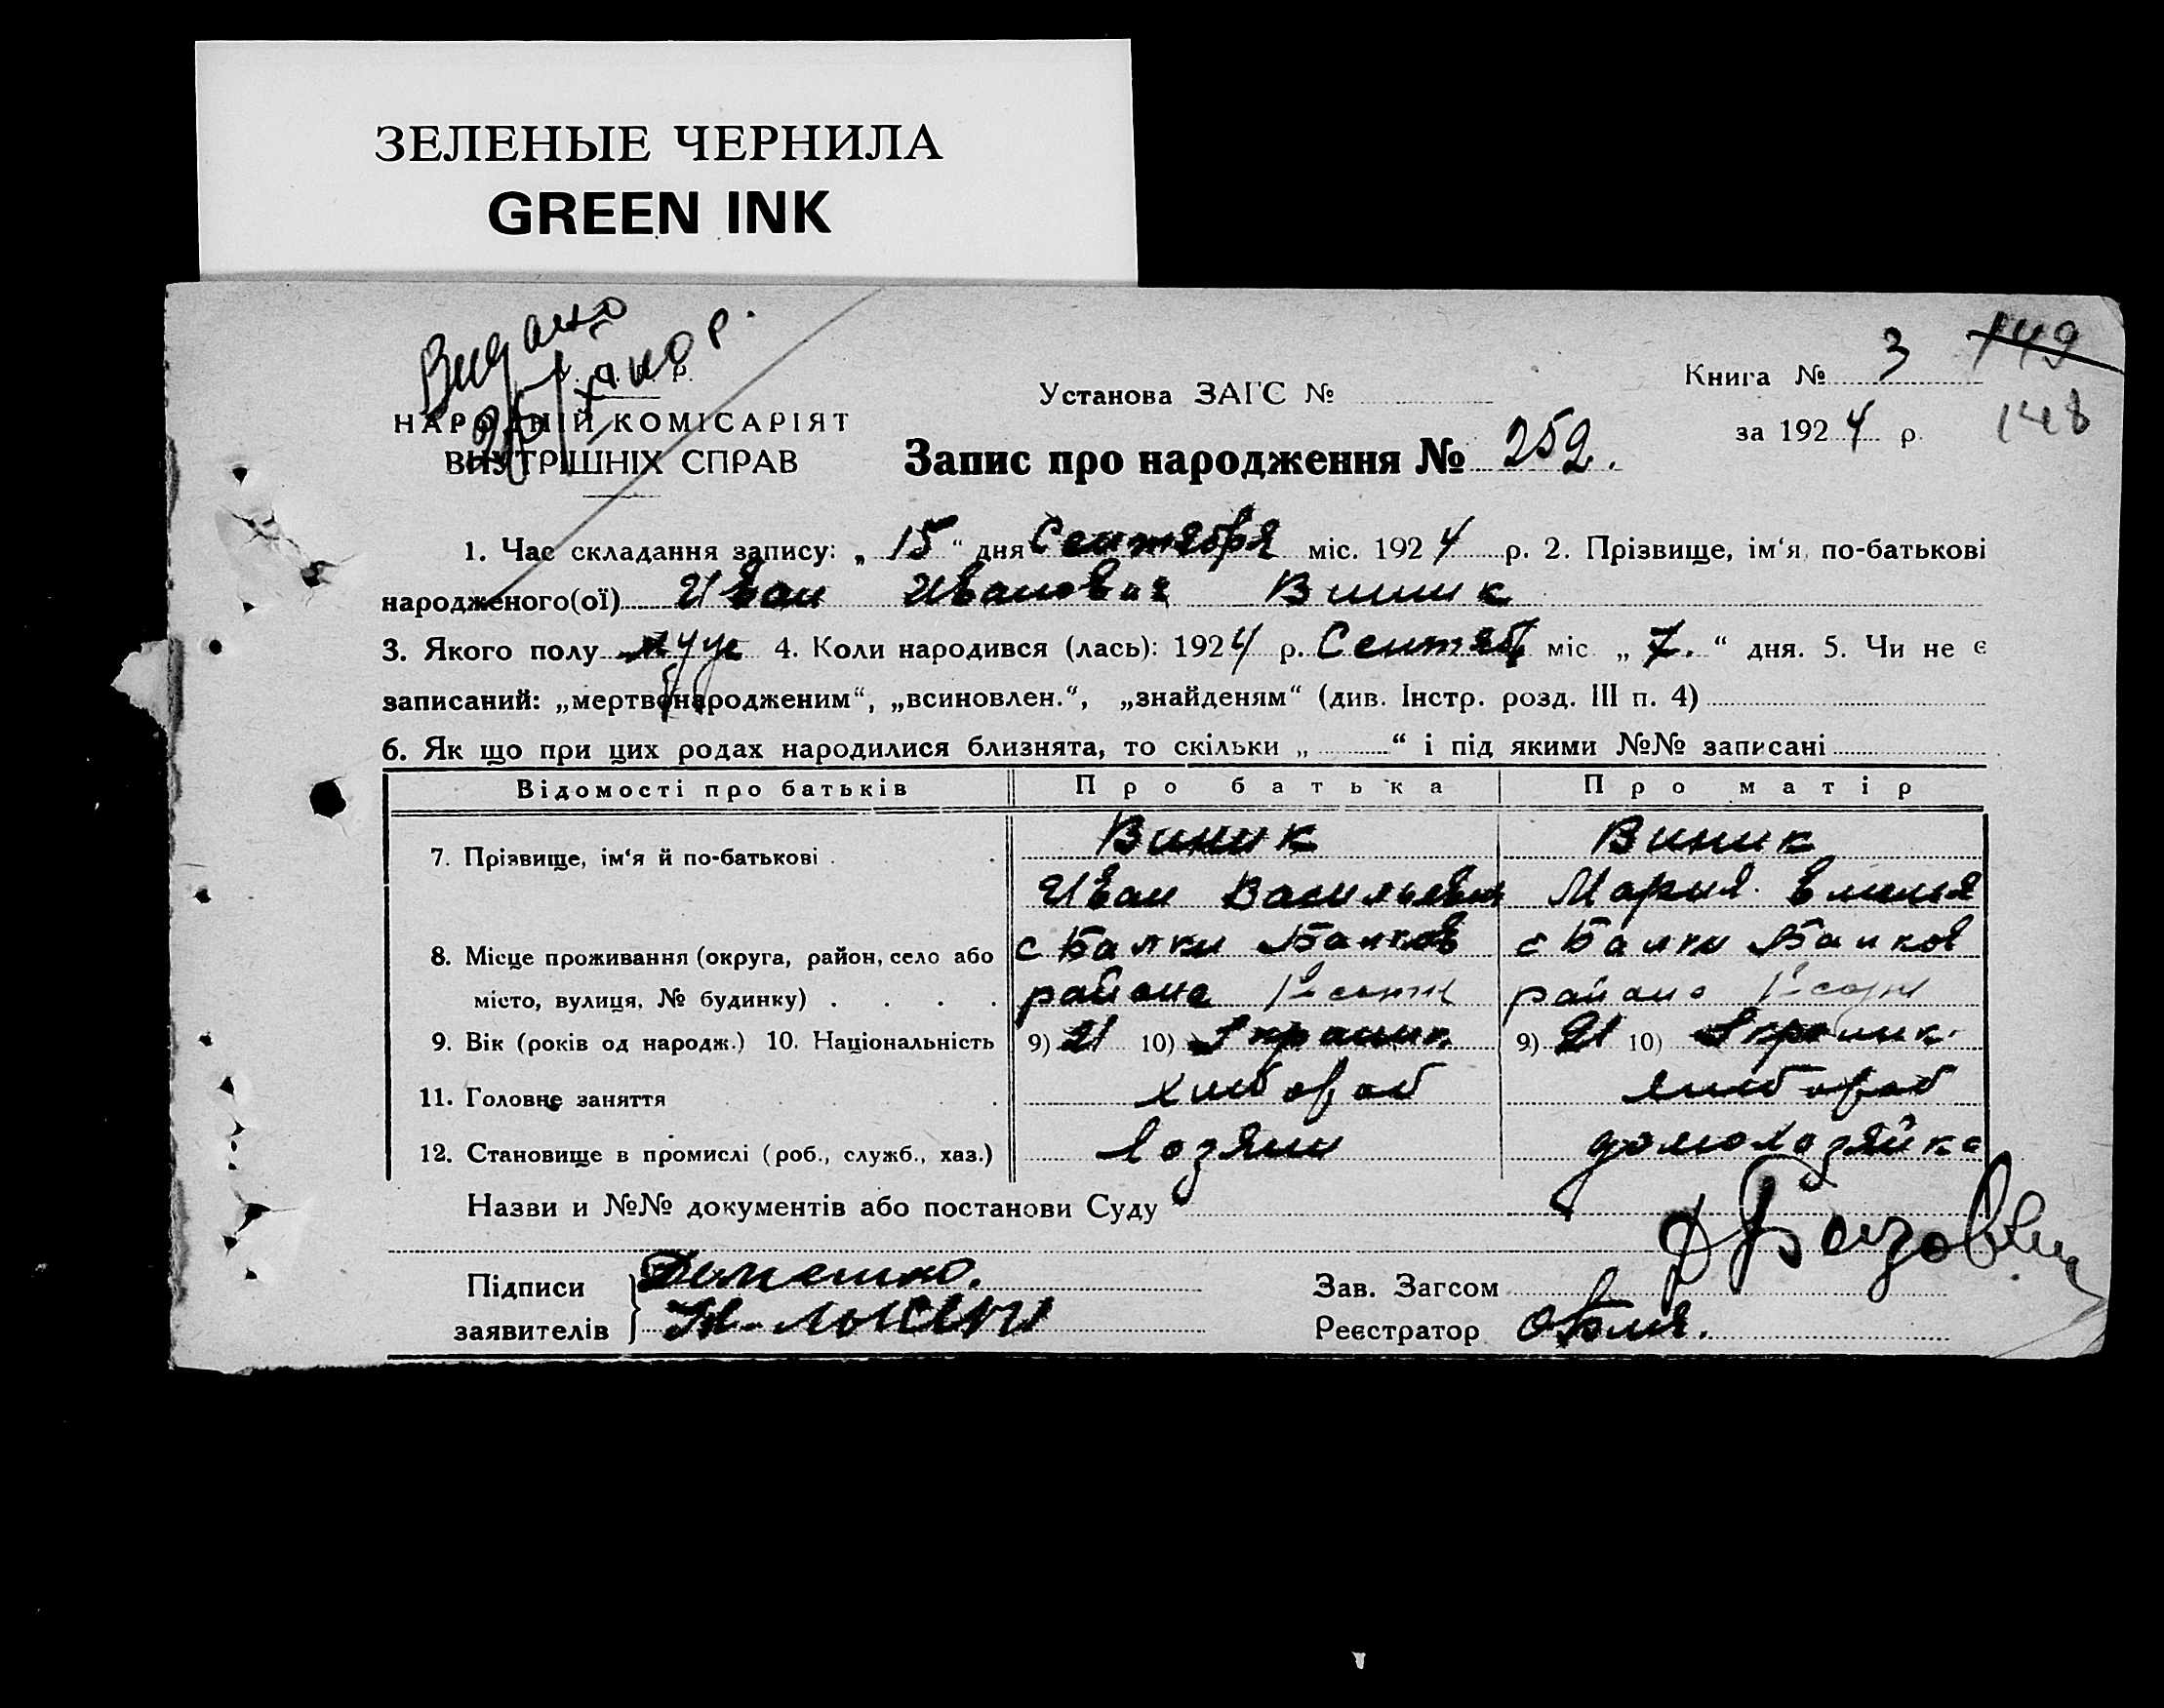 ЗЕЛЕНЫЕ ЧЕРНИЛА
GREEN INK
Видано
Книга № 3 149
148
Установа ЗАГС №
за 1924 р.
НАРОДНІЙ КОМІСАРІЯТ
ВНУТРІШНІХ СПРАВ
Запис про народження № 252.
1. Час складання запису: „ 15 “ дня Сентября міс. 1924 р. 2. Прізвище, ім‘я, по-батькові
народженого(ої) Иван Иванович Виник
3. Якого полу муж 4. Коли народився (лась): 1924 р. Сентяб міс. „ 7. “ дня. 5. Чи не є
записаний: „мертвонародженим“, „всиновлен.“, „знайденям“ (див. Інстр. розд. III п. 4)
6. Як що при цих родах народилися близнята, то скільки „ “ і під якими №№ записані
Відомості про батьків Про батька Про матір
7. Прізвище, ім‘я й по-батькові . . Виник Виник
Иван Васильевич Мария
8. Місце проживання (округа, район, село або с Балки Балков с Балки Балков
місто, вулиця, № будинку) . . . . района района
9. Вік (років од народж.) 10. Національність 9) 21 10) Украинк 9) 21 10) Украинк
11. Головне заняття . хлебороб хлебороб
12. Становище в промислі (роб., служб., хаз.) хозяин домохозяйка
Назви и №№ документів або постанови Суду
Підписи
Зав. Загсом
заявителів
Реєстратор